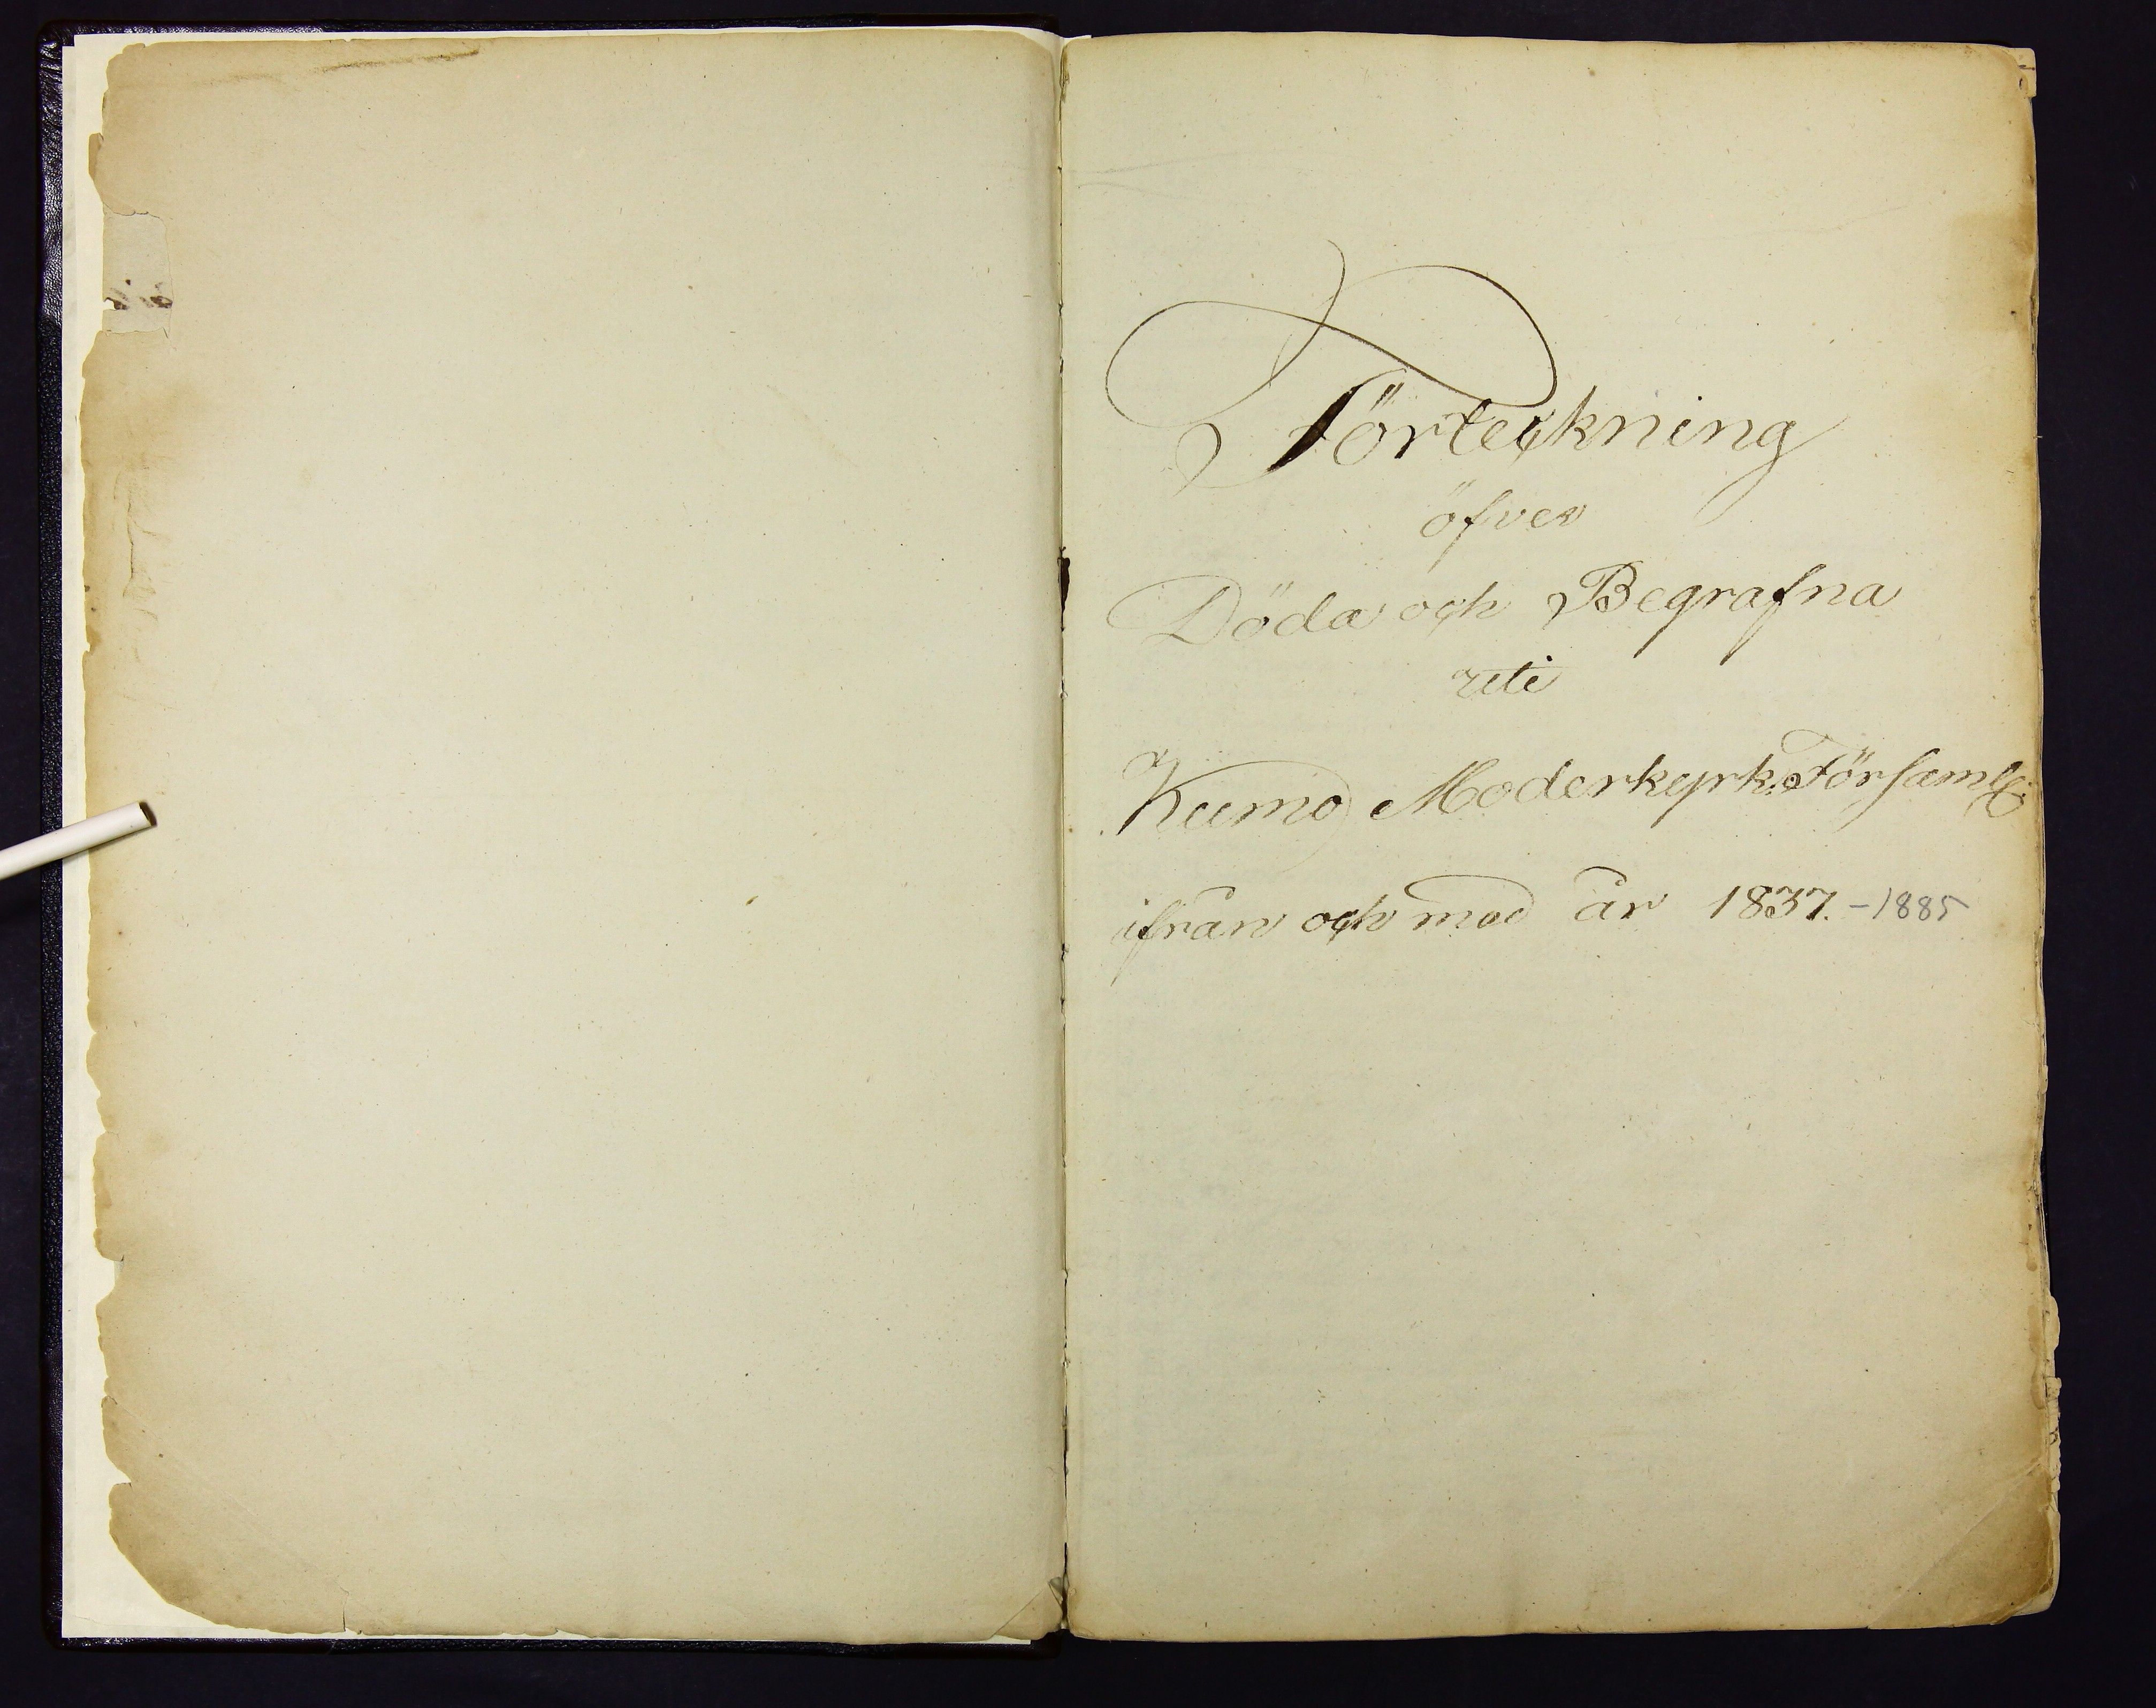 Förteckning
öfver
Döda och Begrafna
uti
Kumo Moderkyrk. Församl:
ifrån och med år 1837.-1885